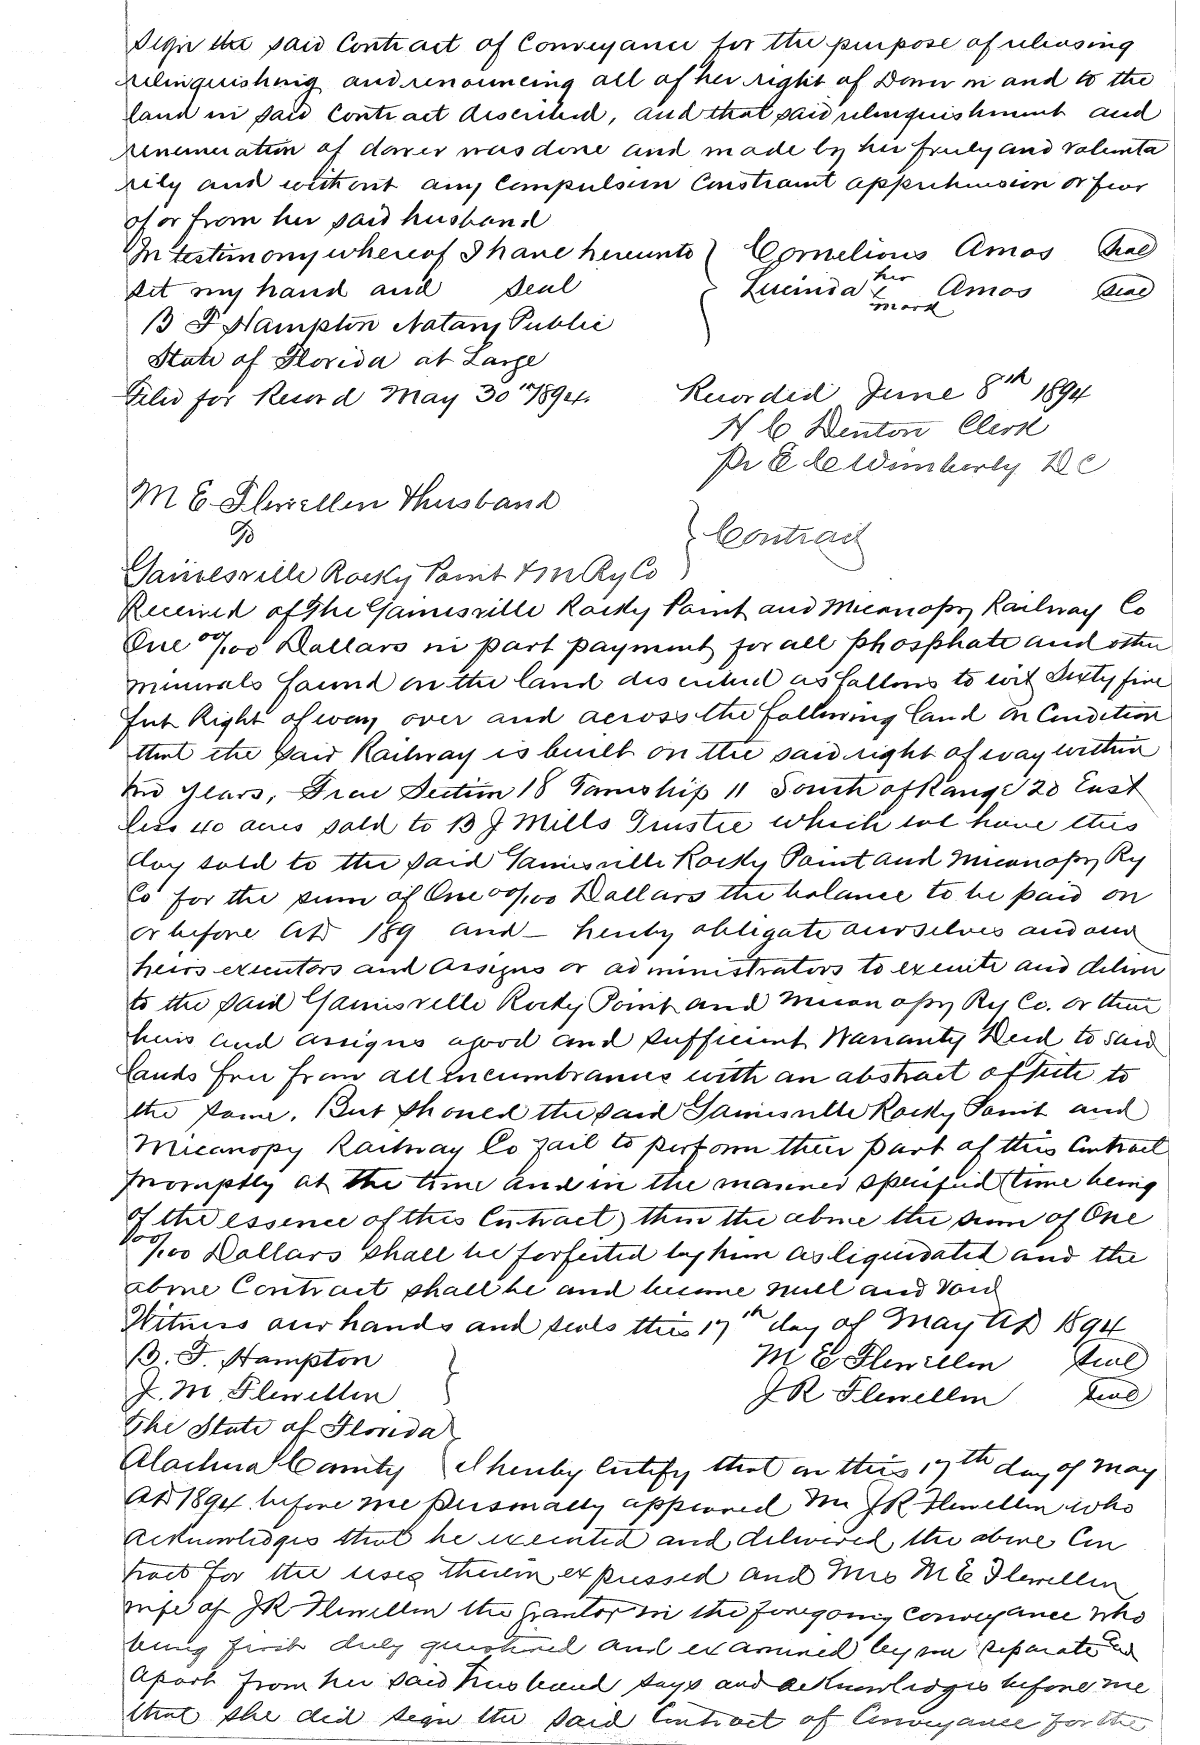 Sign the said Contract of Conveyance for the purpose of releasing
relinquishing and renouncing all of her right of Dower in and to the
land in said Contract described, and that said relinquishment and
renunciation of dower was done and made by her freely and volunta
rily and without any Compulsion Constraint apprehension or fear
of or from her said husband
In testimony whereof I have hereunto Cornelious Amos Seal
set my hand and seal Lucinda her x mark Amos Seal
B F Hampton Notary Public
State of Florida at Large
Filed for Record May 30th 1894. Recorded June 8th 1894
H C Denton Clerk
Pr E C Wimberly D C
M E Flewellen & husband
To Contract
Gainesville Rocky Point & M Ry Co
Received of The Gainesville Rocky Point and Micanopy Railway Co
One 00/100 Dollars in part payment for all phosphate and other
minerals found on the land described as follows to wit Sixty five
feet Right of way over and across the following land on Condition
that the said Railway is built on the said right of way within
two years, Frac Section 18 Township 11 South of Range 20 East
less 40 acres sold to B J Mills Trustee which we have this
day sold to the said Gainesville Rocky Point and Micanopy Ry
Co for the sum of One 00/100 Dollars the balance to be paid on
or before AD 189 and – hereby obligate ourselves and our
heirs executors and assigns or administrators to execute and deliver
to the said Gainesville Rocky Point and Micanopy Ry Co. or their
heirs and assigns a good and sufficient Warranty Deed to said
lands free from all encumbrances with an abstract of title to
the same. But should the said Gainesville Rocky Point and
Micanopy Railway Co fail to perform their part of this Contract
promptly at the time and in the manner specified (time being
of the essence of this Contract) then the above the sum of One
00/100 Dollars shall be forfeited by him as liquidated and the
above Contract shall be and become null and void
Witness our hands and seals this 17th day of May AD 1894
B. F. Hampton M E Flewellen Seal
J. M. Flewellen J R Flewellen Seal
The State of Florida
Alachua County I hereby Certify that on this 17th day of May
AD 1894 before me personally appeared Mr J R Flewellen who
acknowledges that he executed and delivered the above Con
tract for the uses therein expressed and Mrs M E Flewellen
wife of J R Flewellen the grantor in the foregoing conveyance who
being first duly questioned and examined by me separate and
apart from her said husband says and acknowledges before me
that she did sign the said Contract of Conveyance for the